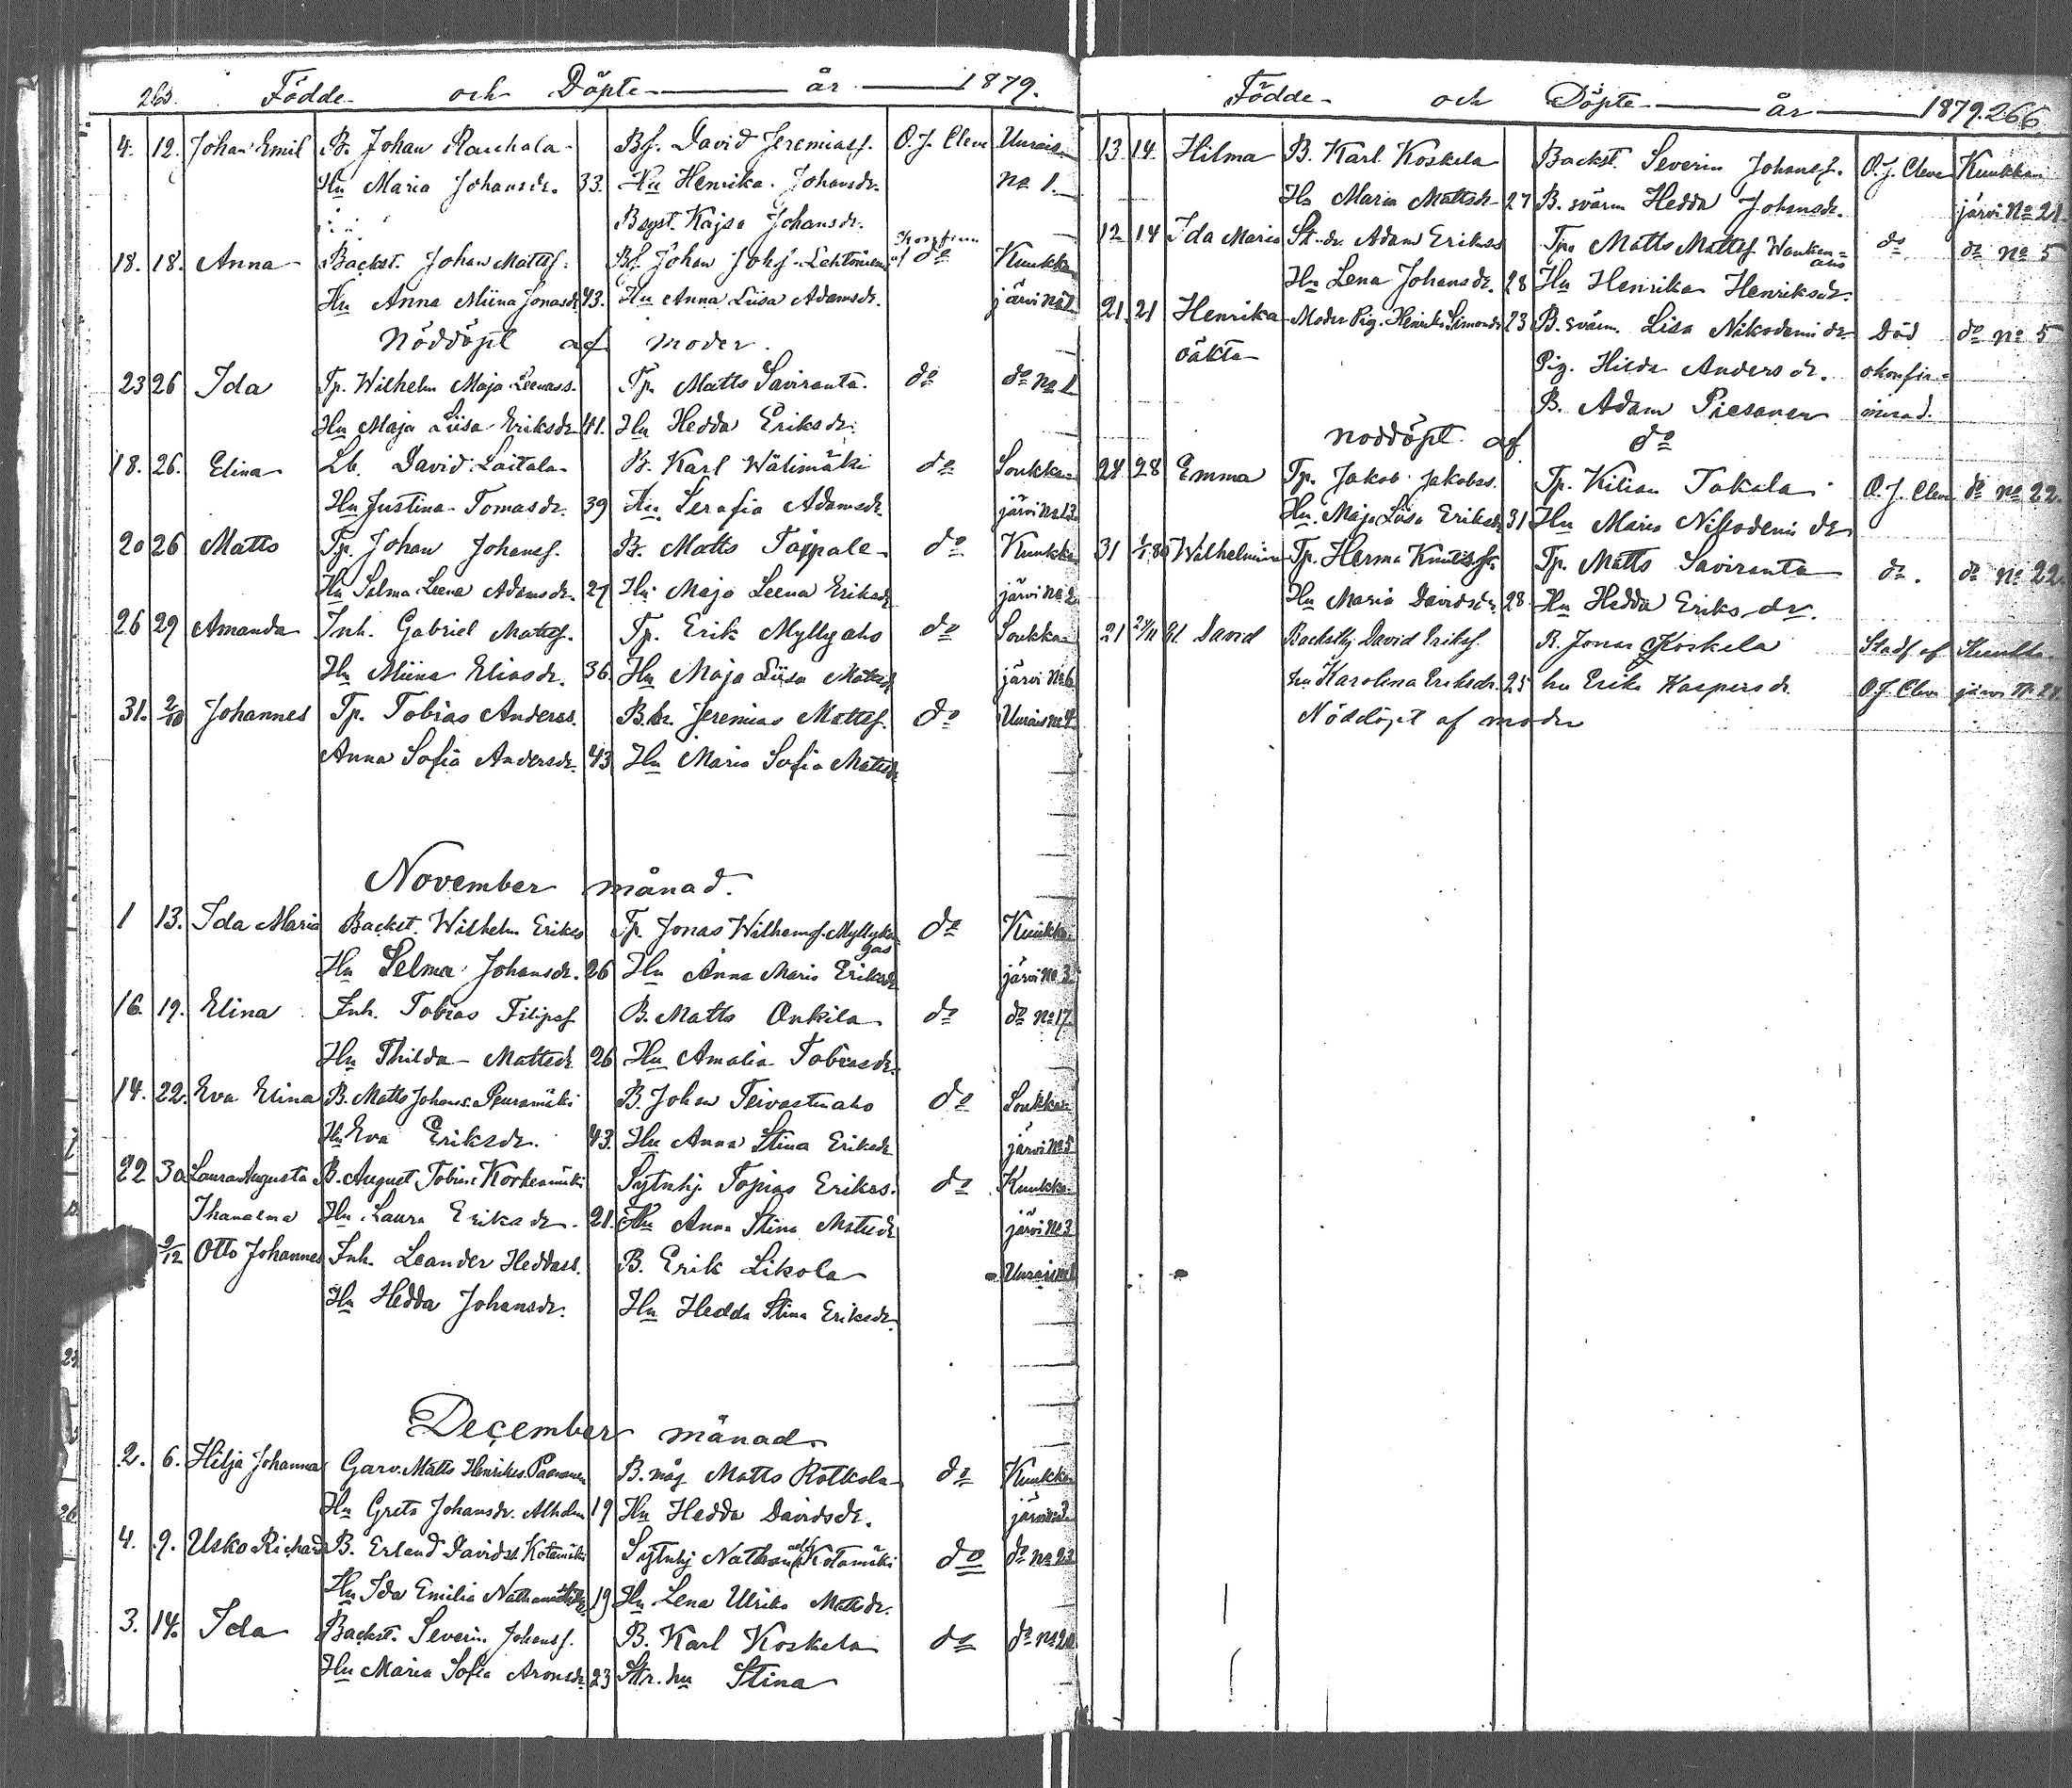 265. Födde och Döpte år 1879.
4. 12. Johan Emil B. Johan Rauhala Bf. David Jeremiass. O. J. Cleve Urais
Hu Maria Johansdr. 33. Hu Henrika Johansdr. no 1.
B syst. Kajsa Johansdr.
18. 18. Anna Backst. Johan Mattss. Bf. Johan Johs. Lehtonen do Kuukka
Hu Anna Miina Jonasdr 43. Hu Anna Liisa Adamsdr. järvi no 2
Nöddöpt af moder.
23 26 Ida Tp. Wilhelm Maja Leenass. Tp. Matts Saviranta. do do no 1
Hu Maja Liisa Eriksdr 41. Hu Hedda Eriksdr.
18. 26. Elina Lb. David Laitala B. Karl Wälimäki do Soukka
Hu Justina Tomasdr. 39 Hu Serafia Adamsdr. järvi no 13
20 26 Matts Tp. Johan Johanss. B. Matts Taipale do Kuukka
Hu Selma Leena Adamsdr. 27 Hu Maja Leena Eriksdr järvi no 2
26 29 Amanda Inh. Gabriel Mattss. Tp. Erik Myllyaho do Soukka
Hu Miina Eliasdr. 36 Hu Maja Liisa Mattsdr järvi no 6
31. 2/10 Johannes Tp. Tobias Anderss. B. br. Jeremias Mattss. do Urais no 4
Anna Sofia Andersdr. 43 Hu Maria Sofia Mattsdr
November månad.
1 13. Ida Maria Backst. Wilhelm Erikss Tp. Jonas Wilhemss. Myllykan do Kuukka
gas
Hu Selma Johansdr. 26 Hu Anna Maria Eriksdr järvi no 3.
16. 19. Elina Inh. Tobias Filipss B. Matts Onkila do do no 17.
Hu Thilda Mattsdr 26 Hu Amalia Tobiasdr.
14. 22. Eva Elina B. Matts Johanss. Peuramäki B. Johan Teivastenaho do Soukka
Hu Eva Eriksdr. 43. Hu Anna Stina Eriksdr järvi no 5
22 30 Laura Augusta B. August Tobiass Korkeamäki Sytnhj. Topias Erikss. do Kuukka
Hu Laura Eriksdr. 21. Hu Anna Stina Mattsdr järvi no 3
9/12 Otto Johannes Inh. Leander Heddass. B. Erik Likola Urais
Hu Hedda Johansdr. Hu Hedda Stina Eriksdr.
December månad
2. 6. Hilja Johanna Garv. Matts Henrikss. Paananen B. måg Matts Rotkola do Kuukka
Hu Greta Johansdr. Alholm 19 Hu Hedda Davidsdr. järvi
4. 9. Usko Richard B. Erland Davidss. Kotamäki Sytnhj Nathanael Kotamäki do do no 23
Hu Ida Emilia 19 Hu Lena Ulrika Mattsdr.
3. 14. Ida Backst. Severin Johanss. B. Karl Koskela do do no 20
Hu Maria Sofia Aronsdr 23 Str. hu Stina
Födde och Döpte år 1879. 266
13 14. Hilma B. Karl Koskela Backst. Severin Johanss. O. J. Cleve Kuukka
Hu Maria Mattsdr 27 B. svärm Hedda Johansdr. järvi No 21
12 14 Ida Maria St. dr. Adam Erikss Tp. Matts Mattss Wanken= do do no 5
aho
Hu Lena Johansdr. 28 Hu Henrika Henriksdr.
21. 21 Henrika Moder Pig. Henrika Simonsdr 23 B. svärm. Lisa Nikodemidr Död do no 5
oäkta Pig. Hilda Andersdr. okonfir=
B. Adam Piesanen merad.
nöddöpt af do
24 28 Emma Tp. Jakob Jakobss. Tp. Kilian Takala O. J. Cleve do no 22.
Hu Maja Liisa Eriksdr 31 Hu Maria Nikodemi dr
31 1/1 80 Wilhelmina Tp. Herman Tp. Matts Saviranta do. do no 22
Hu Maria Davidsdr 28 Hu Hedda Eriksdr.
21 David Backsthj David Erikss. B. Jonas Koskela Stadf af Kuukka
hu Karolina Eriksdr. 25 hu Erika Kaspersdr O. J. Cleve järvi
Nöddöpt af moder